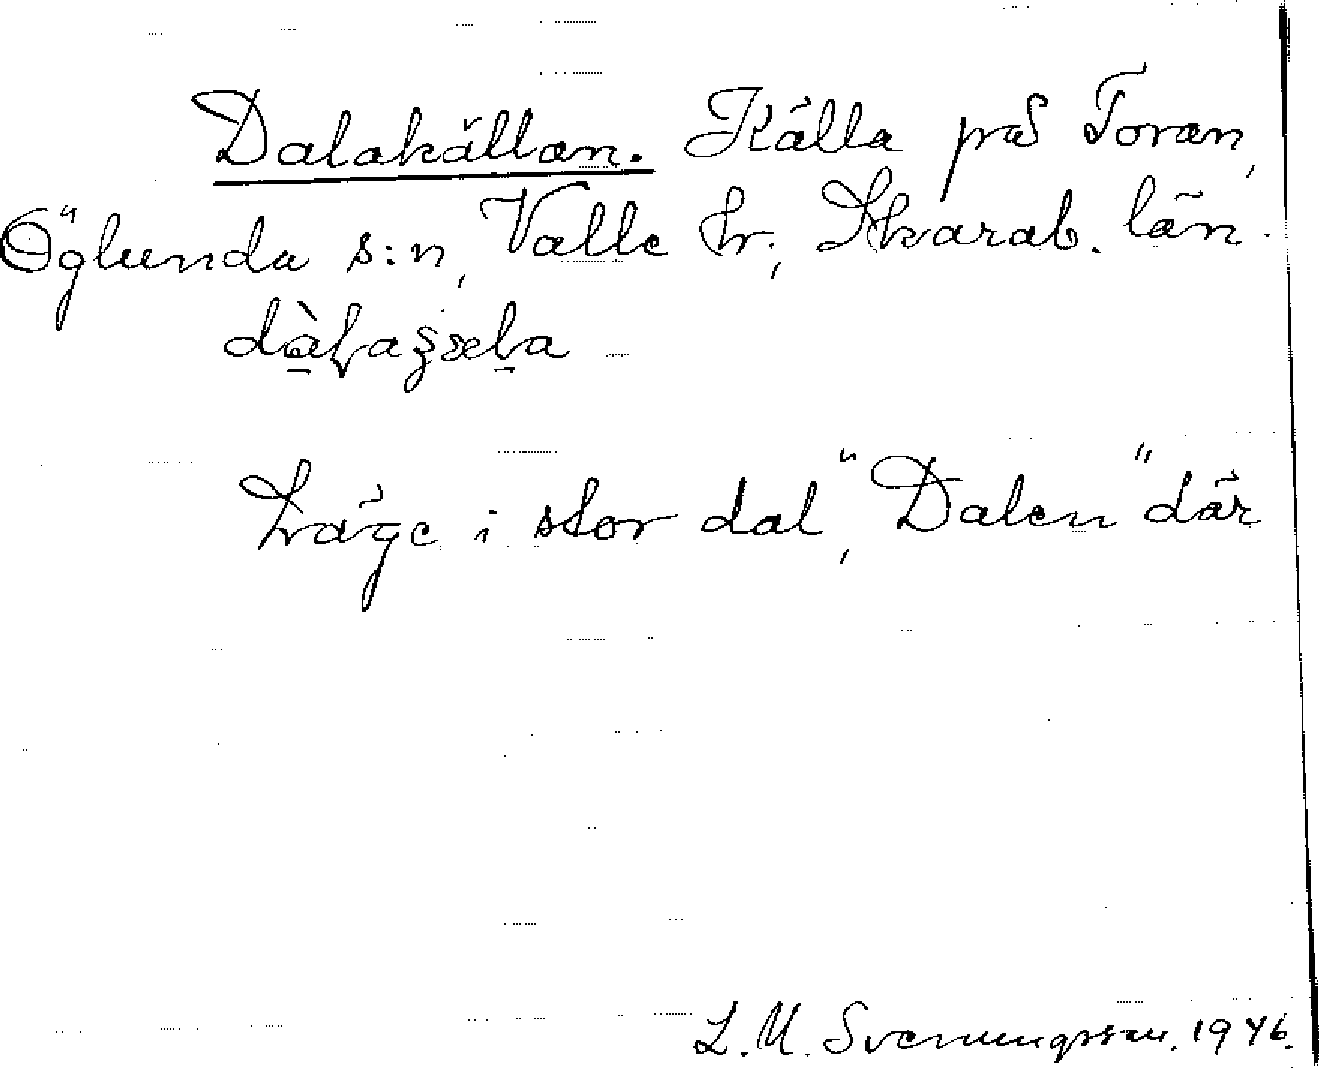 Dalakällan. Källa på Toran,
Öglunda s:n, Valle hr., Skarab. län.
Läge i stor dal, "Dalen" där
L. M. Svenungsson. 1946.